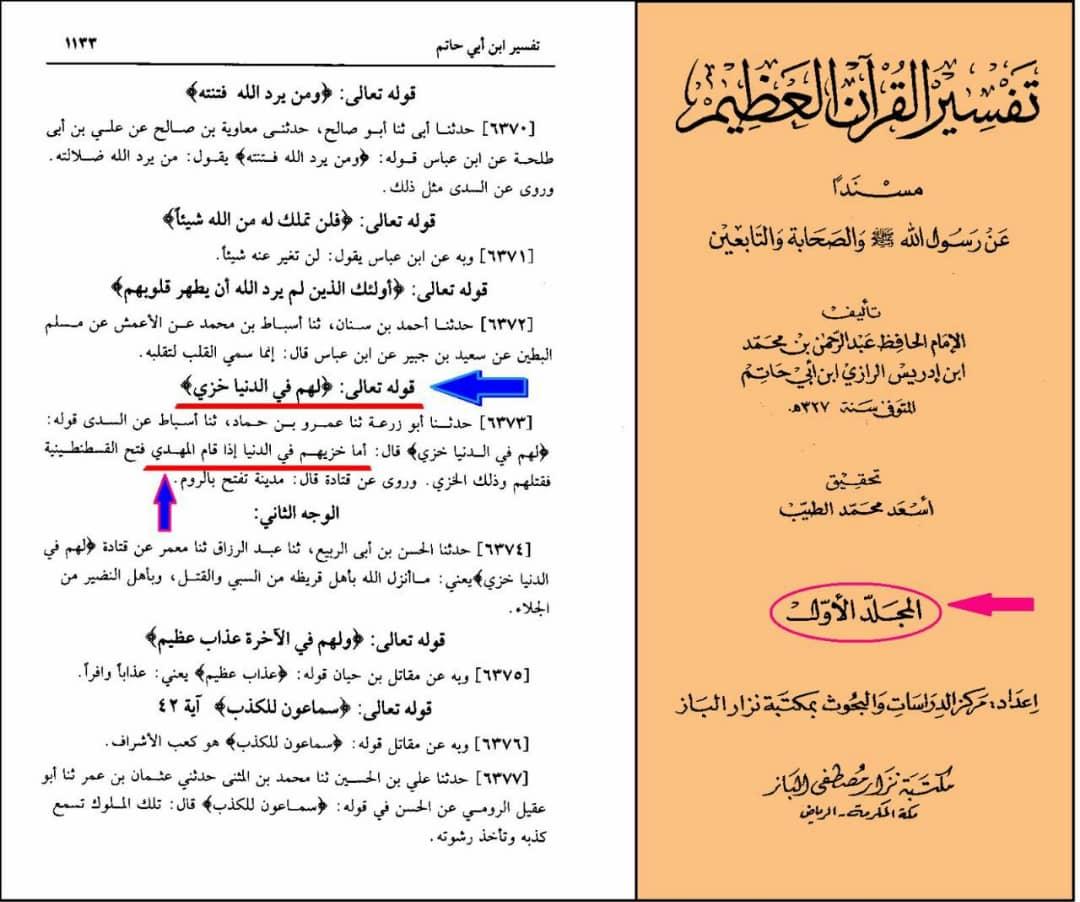 تفسير ابن أبي حاتم ١١٣٣
قوله تعالى: ﴿ومن يرد الله فتنته﴾
[٦٣٧٠] حدثنا أبى ثنا أبو صالح، حدثنى معاوية بن صالح عن علي بن أبى
طلحة عن ابن عباس قوله: ﴿ومن يرد الله فتنته﴾ يقول: من يرد الله ضلالته.
وروى عن السدى مثل ذلك.
قوله تعالى: ﴿فلن تملك له من الله شيئاً﴾
[٦٣٧١] وبه عن ابن عباس يقول: لن تغير عنه شيئاً.
قوله تعالى: ﴿أولئك الذين لم يرد الله أن يطهر قلوبهم﴾
[٦٣٧٢] حدثنا أحمد بن سنان، ثنا أسباط بن محمد عن الأعمش عن مسلم
البطين عن سعيد بن جبير عن ابن عباس قال: إنما سمي القلب لتقلبه.
قوله تعالى: ﴿لهم في الدنيا خزي﴾
[٦٣٧٣] حدثنا أبو زرعة ثنا عمرو بن حماد، ثنا أسباط عن السدى قوله:
﴿لهم في الدنيا خزي﴾ قال: أما خزيهم في الدنيا إذا قام المهدي فتح القسطنطينية
فقتلهم وذلك الخزي. وروى عن قتادة قال: مدينة تفتح بالروم.
الوجه الثاني:
[٦٣٧٤] حدثنا الحسن بن أبى الربيع، ثنا عبد الرزاق ثنا معمر عن قتادة ﴿لهم في
الدنيا خزي﴾يعني: ماأنزل الله بأهل قريظه من السبي والقتل، وبأهل النضير من
الجلاء.
قوله تعالى: ﴿ولهم في الآخرة عذاب عظيم﴾
[٦٣٧٥] وبه عن مقاتل بن حيان قوله: ﴿عذاب عظيم﴾ يعني: عذاباً وافراً.
قوله تعالى: ﴿سماعون للكذب﴾ آية ٤٢
[٦٣٧٦] وبه عن مقاتل قوله: ﴿سماعون للكذب﴾ هو كعب الأشراف.
[٦٣٧٧] حدثنا علي بن الحسين ثنا محمد بن المثنى حدثني عثمان بن عمر ثنا أبو
عقيل الرومي عن الحسن في قوله: ﴿سماعون للكذب﴾ قال: تلك الملوك تسمع
كذبه وتأخذ رشوته.
تَفسِير القُرآن العَظِيم
مسنَدًا
عَن رَسُول الله ﷺ وَالصَحابة وَالتَابعين
تأليف
الإمام الحافظ عَبد الرّحمٰن بن محمّد
ابن إدريس الرازي ابن أبي حَاتِم
المتوفى سَنة ٣٢٧هـ
تحقيق
أسعَد محمّد الطيّب
المجَلّد الأوّل
إعدَاد: مَركز الدرَاسَات وَالبحُوث بمكتَبة نزار البَاز
مكتبة نزار مصطفى الباز
مكة المكرمة - الرياض